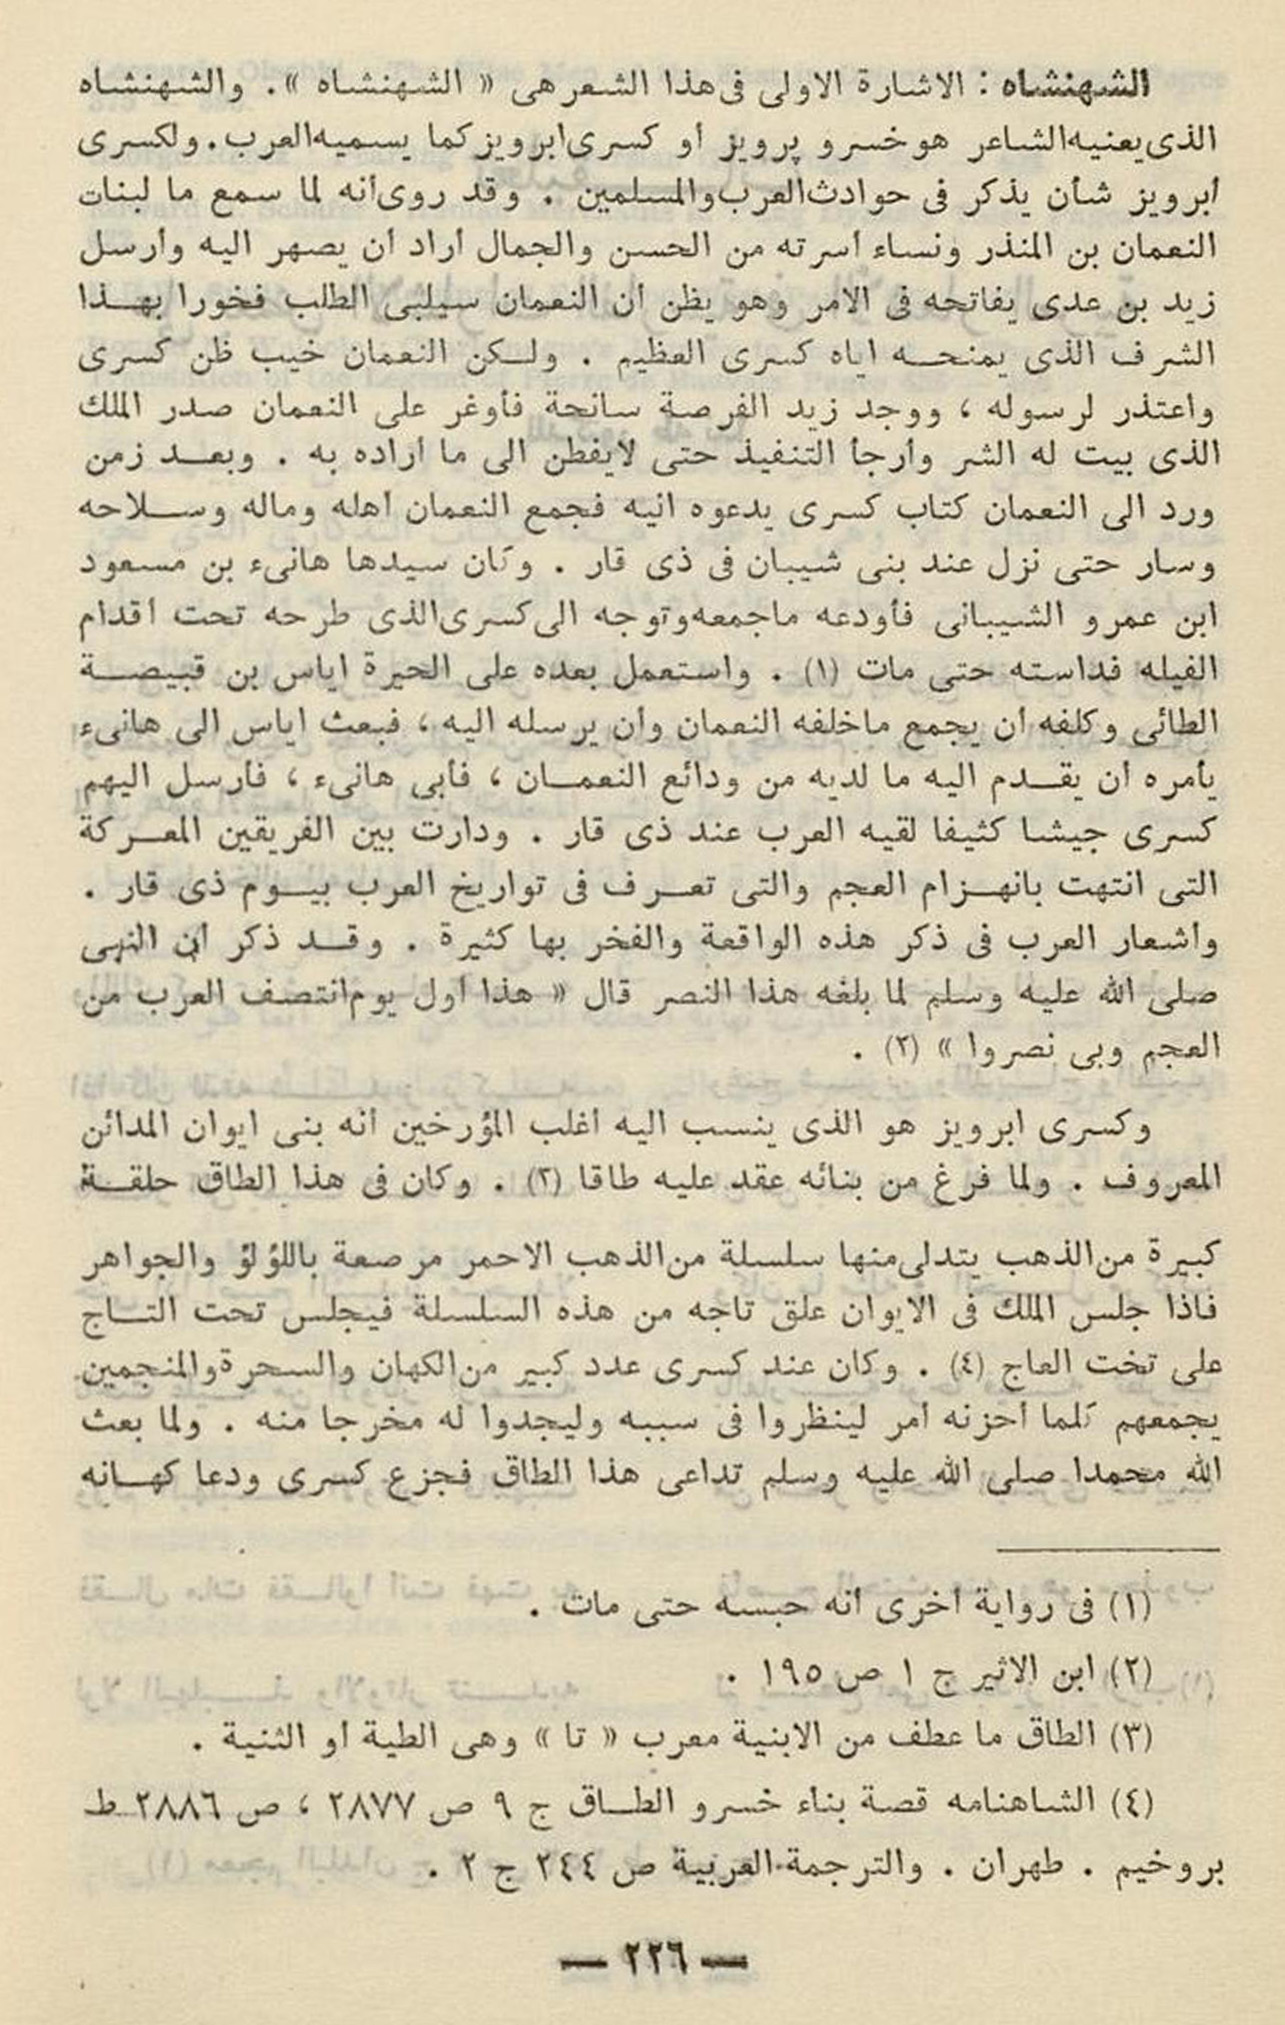 الشهنشاه : الاشارة الاولى فى هذا الشعر هى « الشهنشاه » . والشهنشاه
الذى يعنيه الشاعر هو خسرو پرويز أو كسرى ابرويز كما يسميه العرب . ولكسرى
أبرويز شأن يذكر فى حوادث العرب والمسلمين . وقد روى أنه لما سمع ما لبنات
النعمان بن المنذر ونساء أسرته من الحسن والجمال أراد أن يصهر اليه وأرسل
زيد بن عدى يفاتحه فى الامر وهو يظن أن النعمان سيلبى الطلب فخورا بهذا
الشرف الذى يمنحه اياه كسرى العظيم . ولكن النعمان خيب ظن كسرى
واعتذر لرسوله ، ووجد زيد الفرصة سانحة فأوغر على النعمان صدر الملك
الذى بيت له الشر وأرجأ التنفيذ حتى لايفطن الى ما أراده به . وبعد زمن
ورد الى النعمان كتاب كسرى يدعوه اليه فجمع النعمان أهله وماله وسلاحه
وسار حتى نزل عند بنى شيبان فى ذى قار . وكان سيدها هانىء بن مسعود
ابن عمرو الشيبانى فأودعه ماجمعه وتوجه الى كسرى الذى طرحه تحت أقدام
الفيله فداسته حتى مات (١) . واستعمل بعده على الحيرة اياس بن قبيصة
الطائى وكلفه أن يجمع ماخلفه النعمان وأن يرسله اليه ، فبعث اياس الى هانىء
يأمره أن يقدم اليه ما لديه من ودائع النعمان ، فأبى هانىء ، فأرسل اليهم
كسرى جيشا كثيفا لقيه العرب عند ذى قار . ودارت بين الفريقين المعركة
التى انتهت بانهزام العجم والتى تعرف فى تواريخ العرب بيوم ذى قار .
وأشعار العرب فى ذكر هذه الواقعة والفخر بها كثيرة . وقد ذكر أن النبى
صلى الله عليه وسلم لما بلغه هذا النصر قال « هذا أول يوم انتصف العرب من
العجم وبى نصروا » (٢) .
وكسرى ابرويز هو الذى ينسب اليه أغلب المؤرخين أنه بنى ايوان المدائن
المعروف . ولما فرغ من بنائه عقد عليه طاقا (٣) . وكان فى هذا الطاق حلقة
كبيرة من الذهب يتدلى منها سلسلة من الذهب الاحمر مرصعة باللؤلؤ والجواهر
فاذا جلس الملك فى الايوان علق تاجه من هذه السلسلة فيجلس تحت التاج
على تخت العاج (٤) . وكان عند كسرى عدد كبير من الكهان والسحرة والمنجمين
يجمعهم كلما أحزنه أمر لينظروا فى سببه وليجدوا له مخرجا منه . ولما بعث
الله محمدا صلى الله عليه وسلم تداعى هذا الطاق فجزع كسرى ودعا كهانه
(١) فى رواية أخرى أنه حبسه حتى مات .
(٢) ابن الاثير ج ١ ص ١٩٥ .
(٣) الطاق ما عطف من الابنية معرب « تا » وهى الطية أو الثنية .
(٤) الشاهنامه قصة بناء خسرو الطاق ج ٩ ص ٢٨٧٧ ، ص ٢٨٨٦ ط
بروخيم . طهران . والترجمة العربية ص ٢٤٤ ج ٢ .
— ٢٢٦ —